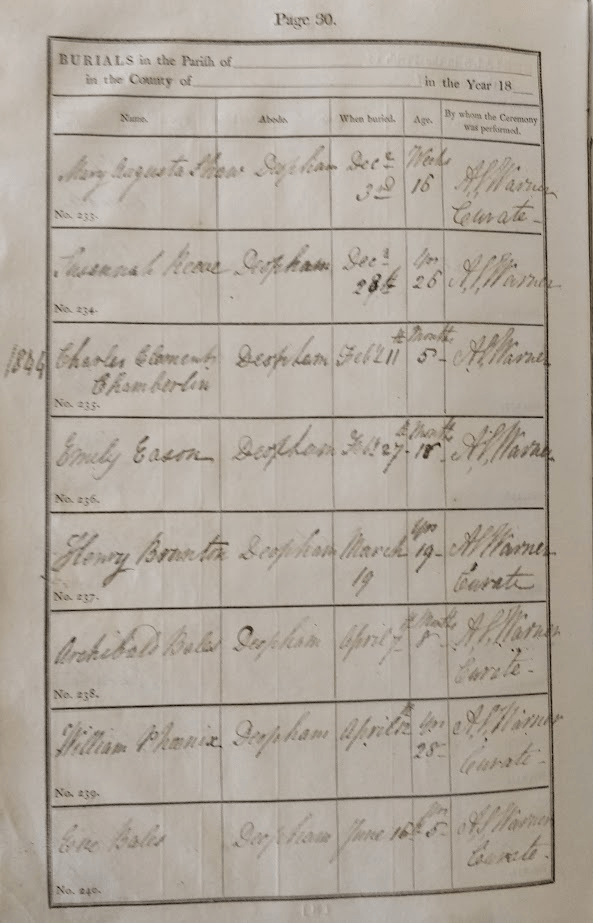 Page 30.
BURIALS in the Parish of
in the County of in the Year 18
Name. Abode. When buried. Age. By whom the Ceremony was performed.
Mary Augusta Shaw Deopham Decr 3rd Weeks 16 A.S. Warner Curate
No. 233.
Susannah Reeve Deopham Decr 28th Yrs 26 A.S. Warner
No. 234.
1844 Charles Clements Deopham Feby 11th Months 5 A.S. Warner
Chamberlin
No. 235.
Emily Eason Deopham Feby 27th Months 18 A.S. Warner
No. 236.
Henry Brunton Deopham March 19 Yrs 19 A.S. Warner Curate
No. 237.
Archibald Bales Deopham April 7th Months 8 A.S. Warner Curate
No. 238.
William Phoenix Deopham April 12th Yrs 28 A.S. Warner Curate
No. 239.
Bales Deopham June 16th Yrs 5 A.S. Warner Curate
No. 240.